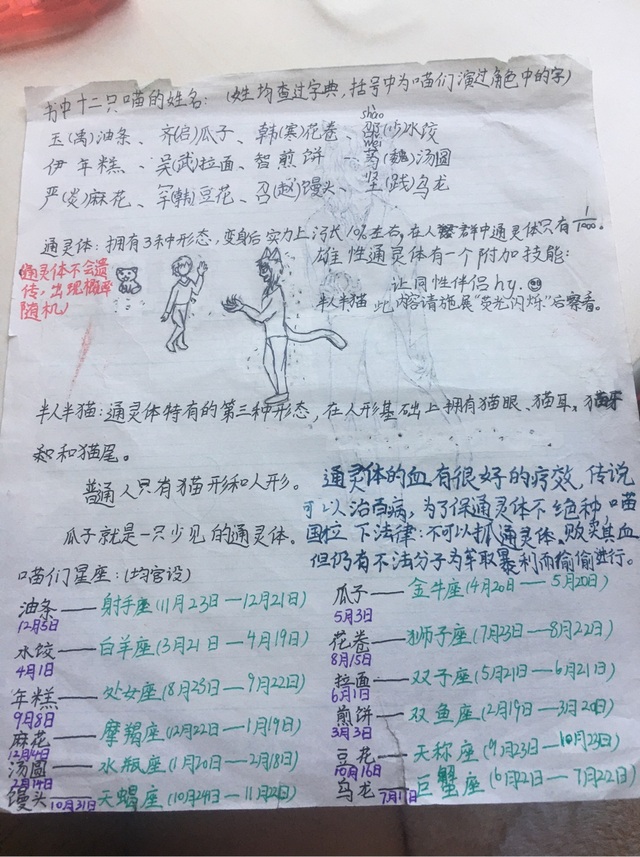 书中十二只喵的姓名：(姓均查过字典，括号中为喵们演过角色中的字)
玉(禹)油条、齐(启)瓜子、韩(寒)花卷、邵(少)冰饺
shào
伊年糕、吴(武)拉面、智煎饼、蒍(魏)汤圆
wěi
严(炎)麻花、(韩)豆花、召(赵)馒头、坚(践)乌龙
通灵体：拥有3种形态，变身后实力上涨10%左右，在人群中通灵体只有1/1000。
通灵体不会遗传，出现概率随机)
雄性通灵体有一个附加技能：
让同性伴侣hy.
半人半猫
此内容请施展"荧光闪烁"后察看。
半人半猫：通灵体特有的第三种形态，在人形基础上拥有猫眼、猫耳、猫牙
和猫尾。
普通人只有猫形和人形。
瓜子就是一只少见的通灵体。
通灵体的血有很好的疗效，传说
可以治百病，为了保通灵体不绝种，喵
国立下法律：不可以抓通灵体，贩卖其血
但仍有不法分子为牟取暴利而偷偷进行。
喵们星座：(均官设)
油条——射手座(11月23日—12月21日)
12月5日
水饺——白羊座(3月21日—4月19日)
4月1日
年糕——处女座(8月23日—9月22日)
9月8日
麻花——摩羯座(12月22日—1月19日)
汤圆——水瓶座(1月20日—2月18日)
2月14日
馒头——天蝎座(10月24日—11月22日)
10月31日
瓜子——金牛座(4月20日—5月20日)
5月3日
花卷——狮子座(7月23日—8月22日)
8月15日
拉面——双子座(5月21日—6月21日)
6月1日
煎饼——双鱼座(2月19日—3月20日)
3月3日
豆花——天秤座(9月23日—10月23日)
10月16日
乌龙——巨蟹座(6月21日—7月22日)
7月1日